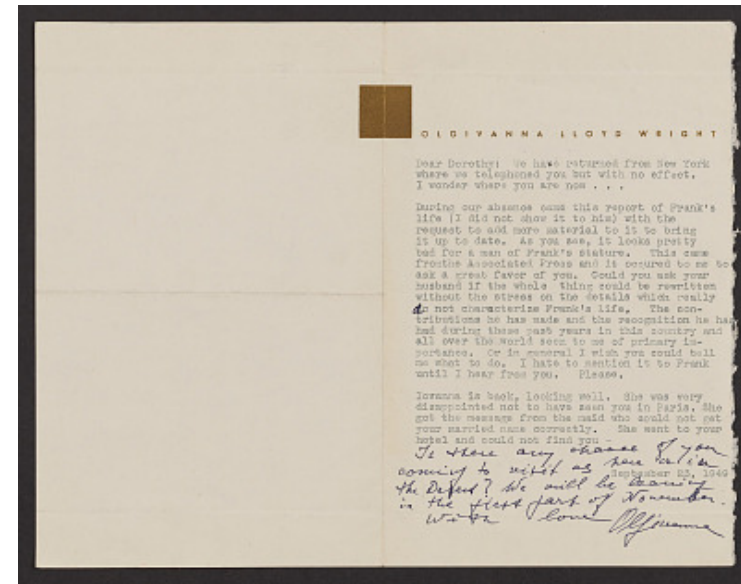 OLGIVANNA LLOYD WRIGHT
Dear Dorothy: We have returned from New York
where we telephoned you but with no effect.
I wonder where you are now . . .
During our absence came this report of Frank's
life (I did not show it to him) with the
request to add more material to it to bring
it up to date. As you see, it looks pretty
bad for a man of Frank's stature. This came
fromthe Associated Press and it occured to me to
ask a great favor of you. Could you ask your
husband if the whole thing could be rewritten
without the stress on the details which really
do not characterize Frank's life. The con-
tributions he has made and the recognition he has
had during these past years in this country and
all over the world seem to me of primary im-
portance. Or in general I wish you could tell
me what to do. I hate to mention it to Frank
until I hear from you. Please.
Iovanna is back, looking well. She was very
disappointed not to have seen you in Paris. She
got the message from the maid who could not get
your married name correctly. She went to your
hotel and could not find you -
Is there any chance of you
coming to visit us here or in
September 23, 1949
the Desert? We will be leaving
in the first part of November.
With love Olgivanna